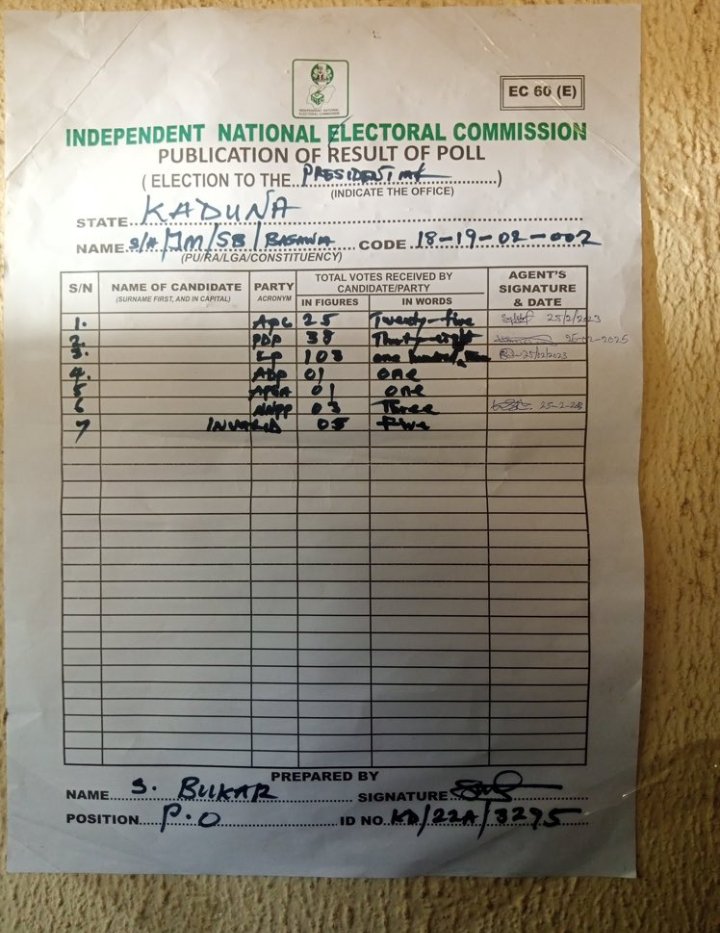 EC 60 (E)
INDEPENDENT NATIONAL ELECTORAL COMMISSION
PUBLICATION OF RESULT OF POLL
( ELECTION TO THE PRESIDENTIAL )
(INDICATE THE OFFICE)
STATE KADUNA
NAME S/A/JM/SB/BASAWA CODE 18-19-02-002
(PU/RA/LGA/CONSTITUENCY)
S/N NAME OF CANDIDATE (SURNAME FIRST, AND IN CAPITAL) PARTY ACRONYM TOTAL VOTES RECEIVED BY CANDIDATE/PARTY IN FIGURES IN WORDS AGENT'S SIGNATURE & DATE
1. APC 25 Twenty-five 25/2/2023
2. PDP 38 Thirty-eight
3. LP 103 one hundred, 25/02/2023
4. ADP 01 one
5 APGA 01 one
6 NNPP 03 Three 25-2-23
7 INVALID 05 Five
PREPARED BY
NAME S. BUKAR SIGNATURE
POSITION P.O ID NO. KD/22A/3295